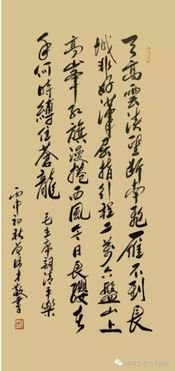 天高雲淡望断南飛雁不到長
城非好漢屈指行程二萬六盤山上
高峰紅旗漫捲西風今日長纓在
手何時縛住蒼龍
毛主席詞清平樂
丙申初秋
書